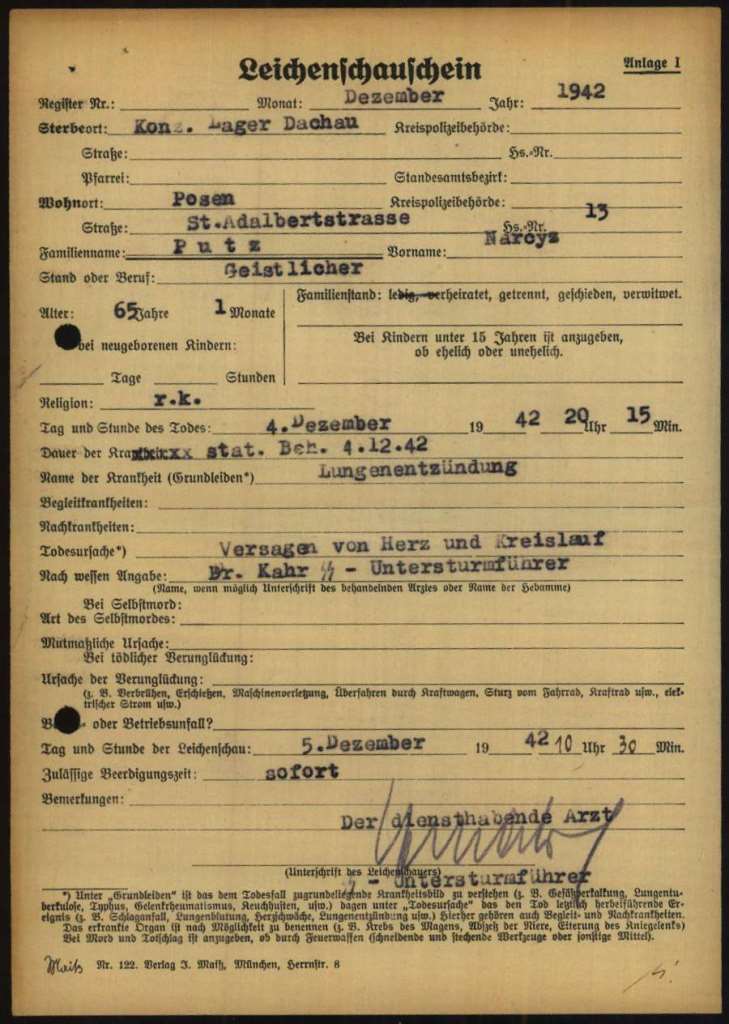 Leichenschauschein Anlage 1
Register Nr.: Monat: Dezember Jahr: 1942
Sterbeort: Konz. Lager Dachau Kreispolizeibehörde:
Straße: Hs.-Nr.
Pfarrei: Standesamtsbezirk:
Wohnort: Posen Kreispolizeibehörde:
Straße: St.Adalbertstrasse Hs.-Nr. 13
Familienname: P u t z Vorname: Narcyz
Stand oder Beruf: Geistlicher
Alter: 65 Jahre 1 Monate
Familienstand: ledig, verheiratet, getrennt, geschieden, verwitwet.
bei neugeborenen Kindern:
Tage Stunden
Bei Kindern unter 15 Jahren ist anzugeben,
ob ehelich oder unehelich.
Religion: r.k.
Tag und Stunde des Todes: 4.Dezember 19 42 20 Uhr 15 Min.
Dauer der Kraxxxxx stat. Beh. 4.12.42
Name der Krankheit (Grundleiden*) Lungenentzündung
Begleitkrankheiten:
Nachkrankheiten:
Todesursache*) Versagen von Herz und Kreislauf
Nach wessen Angabe: Dr. Kahr ᛋᛋ - Untersturmführer
(Name, wenn möglich Unterschrift des behandelnden Arztes oder Name der Hebamme)
Bei Selbstmord:
Art des Selbstmordes:
Mutmaßliche Ursache:
Bei tödlicher Verunglückung:
Ursache der Verunglückung:
(z. B. Verbrühen, Erschießen, Maschinenverletzung, Überfahren durch Kraftwagen, Sturz vom Fahrrad, Kraftrad usw., elek-
trischer Strom usw.)
oder Betriebsunfall?
Tag und Stunde der Leichenschau: 5.Dezember 19 42 10 Uhr 30 Min.
Zulässige Beerdigungszeit: sofort
Bemerkungen:
Der diensthabende Arzt
(Unterschrift des Leichenschauers)
ᛋᛋ - Untersturmführer
*) Unter „Grundleiden“ ist das dem Todesfall zugrundeliegende Krankheitsbild zu verstehen (z. B. Gefäßverkalkung, Lungentu-
berkulose, Typhus, Gelenkrheumatismus, Keuchhusten, usw.) dagen unter „Todesursache“ das den Tod letztlich herbeiführende Er-
eignis (z. B. Schlaganfall, Lungenblutung, Herzschwäche, Lungenentzündung usw.) Hierher gehören auch Begleit- und Nachkrankheiten.
Das erkrankte Organ ist nach Möglichkeit zu benennen (z. B. Krebs des Magens, Abszeß der Niere, Eiterung des Kniegelenks)
Bei Mord und Totschlag ist anzugeben, ob durch Feuerwaffen (schneidende und stechende Werkzeuge oder sonstige Mittel).
Maiß Nr. 122. Verlag J. Maiß, München, Herrnstr. 8